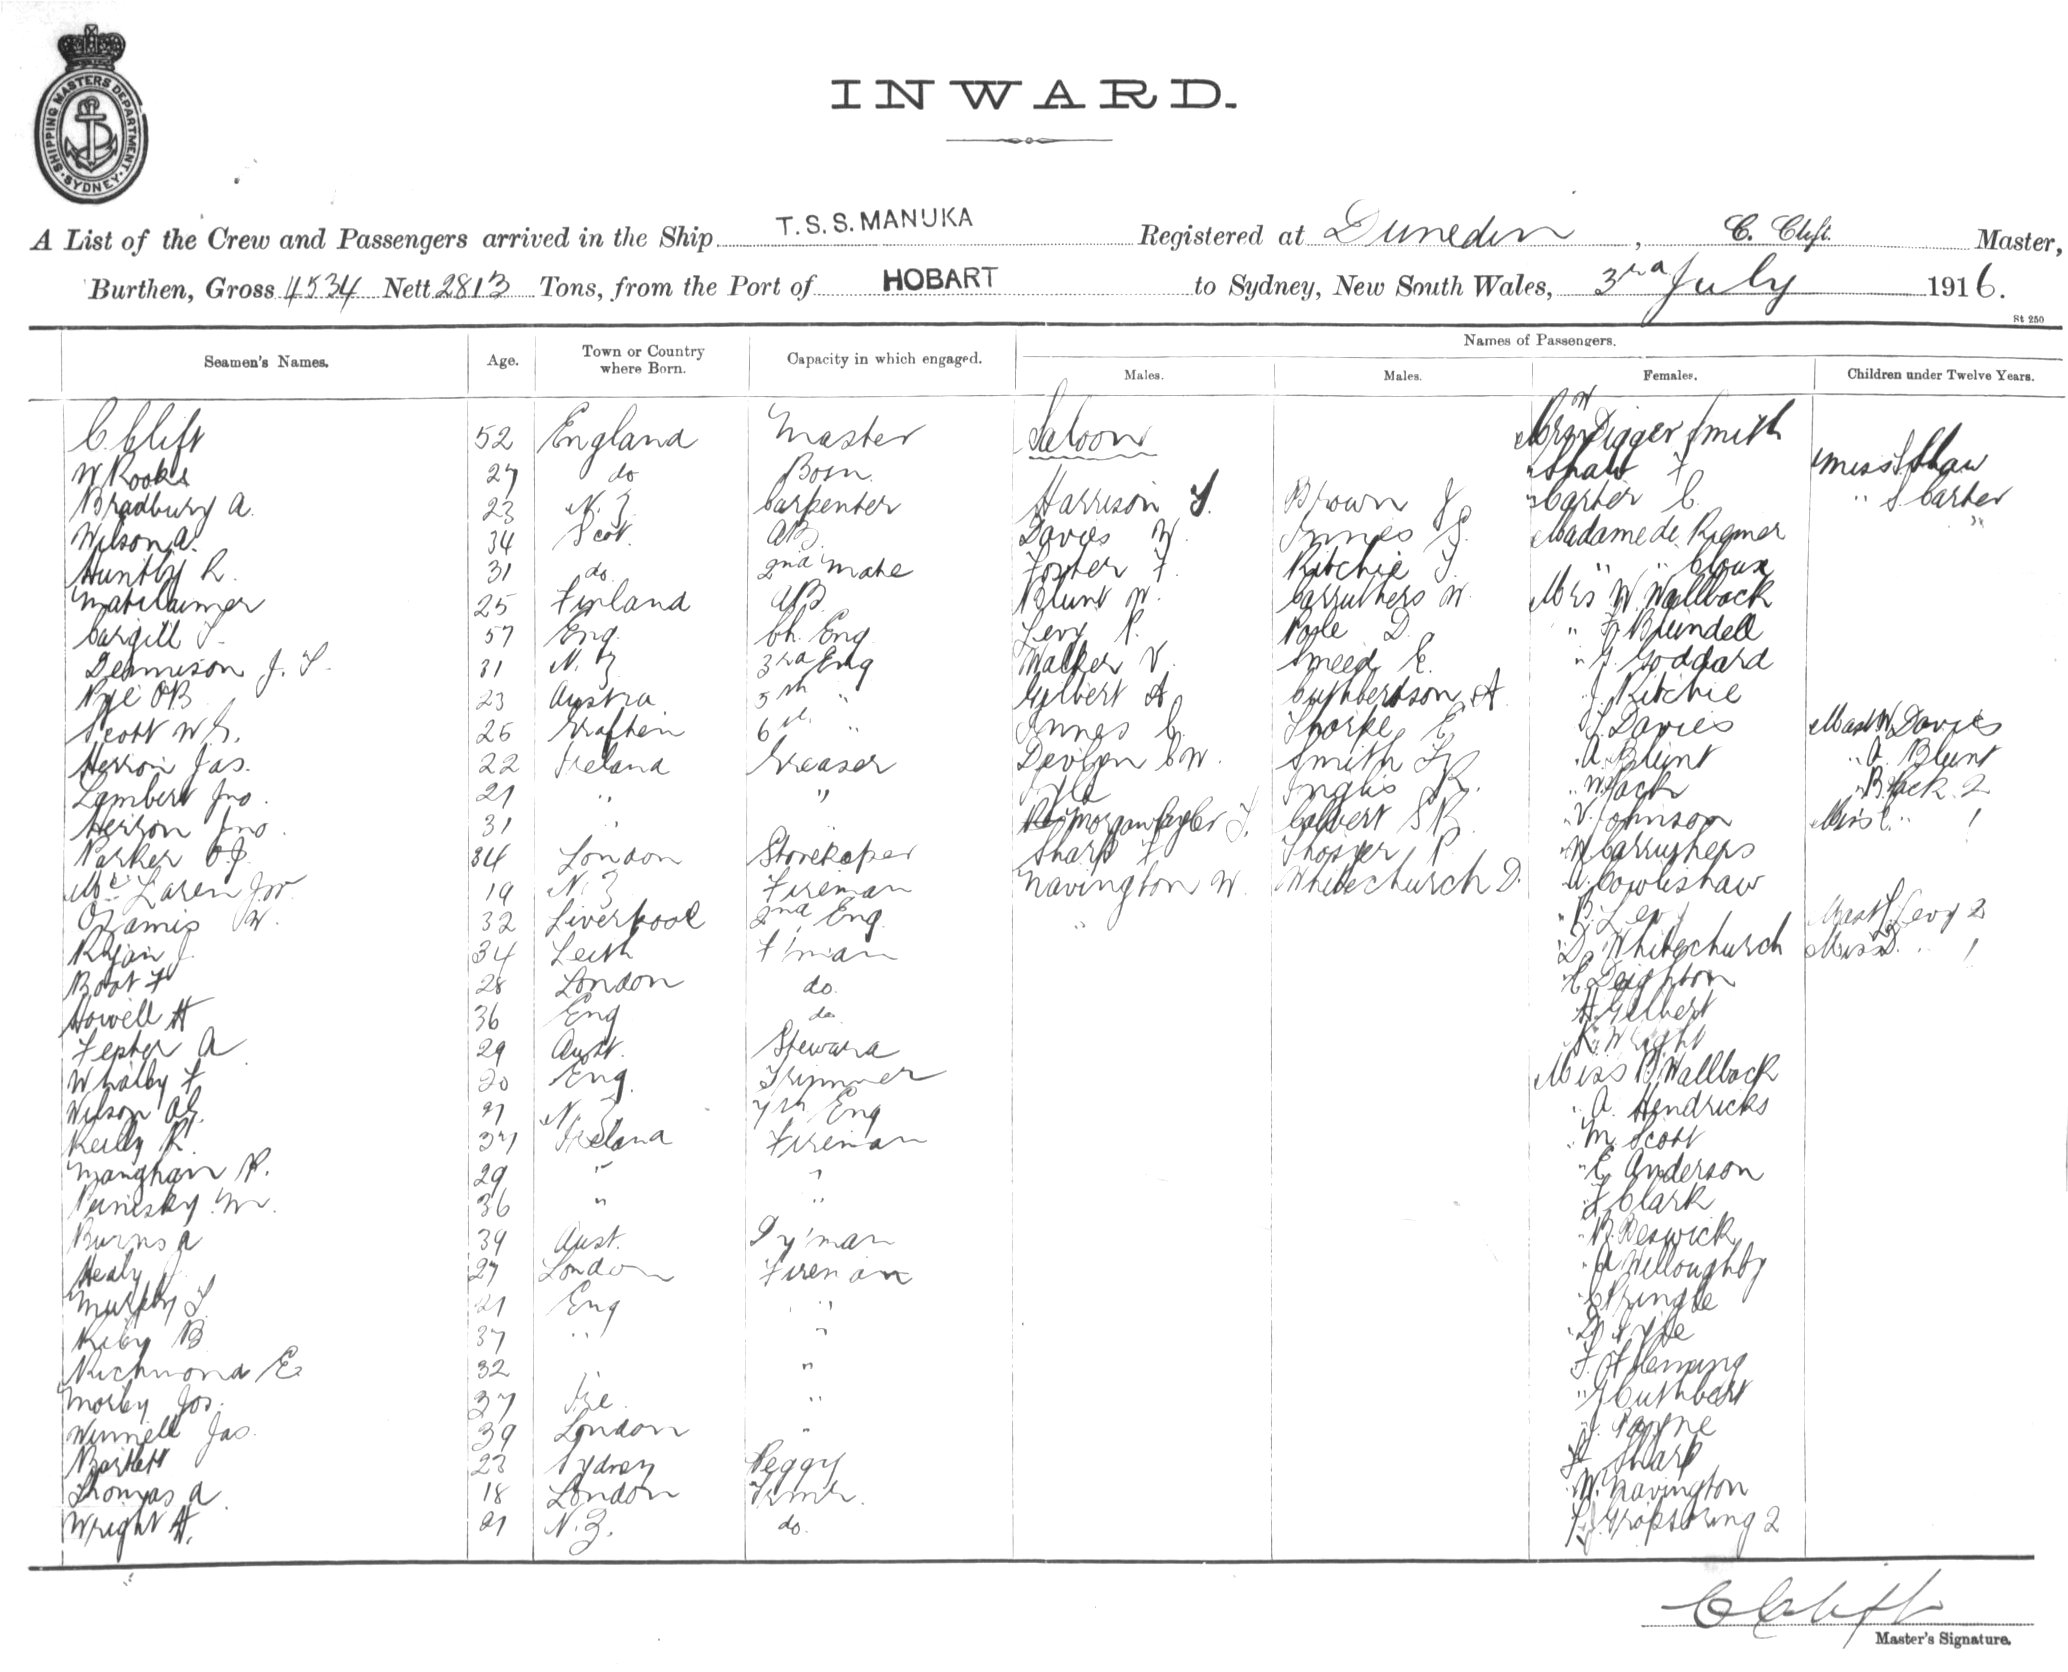 SHIPPING MASTERS DEPARTMENT · SYDNEY ·
INWARD.
A List of the Crew and Passengers arrived in the Ship T.S.S. MANUKA Registered at Dunedin, C. Clift. Master,
Burthen, Gross 4534 Nett 2813 Tons, from the Port of HOBART to Sydney, New South Wales, 3rd July 1916.
St 250
Names of Passengers.
Seamen's Names. Age. Town or Country where Born. Capacity in which engaged. Males. Males. Females. Children under Twelve Years.
C Clift 52 England Master Saloon Digger Smith
W Rooke 27 do Bosn. Shaw F Miss Shaw
Bradbury A. 23 N.Z. Carpenter Harrison Brown J Carter C. " Carter
Wilson A. 34 Scot. AB. Davies W. Innes G. Madame de
Huntly R. 31 do 2nd Mate Foster F. Ritchie J. " "
25 Finland AB Blunt W. Carruthers W. Mrs W. Wallback
Cargill J. 57 Eng. Ch. Eng Levy R. Pole D. " F. Blundell
Dennison J. S. 31 N.Z 3rd Eng Walker V. Smeed E. " J. Goddard
Nye OB 23 Austra 5th " Gilbert A Cuthbertson A " J. Ritchie
Scott W.G. 25 Grafton 6th " Innes C. Thorke E " Davies Mast W. Davies
Herron Jas. 22 Ireland Greaser Devlyn C W. Smith " A. Blunt " A. Blunt
Lambert Jno. 21 " " Lyle Inglis R. " W. Jack " B. Jack 2
Herron Jno. 31 " Calvert S R. " V. Johnson Miss C. " 1
Parker O.J. 34 London Storekeper Sharp F P. " W Carruthers
McLaren Jno 19 N.Z Fireman Navington W. Whitechurch D. " A. Cowlishaw
W. 32 Liverpool 2nd Eng. " R. Levy Mast L. Levy 2
Ryan J. 34 Leith F'man " D. Whitechurch Miss D. " 1
Boot F 28 London do. " E Deighton
Howell H 36 Eng do. " A. Gilbert
A 29 Aust. Steward " R. Wright
Whalby F 20 Eng. Trimmer Miss B. Wallback
Wilson AG. 21 N.Z 7th Eng " A. Hendricks
Reilly R. 37 Ireland Fireman " M. Scott
Manghan P. 29 " " " E Anderson
M. 36 " " " F Clark
Burns A 39 Aust. " B. Beswick
Healy J 27 London Fireman " A Willoughby
Murphy J. 21 Eng " " C Pringle
B 37 " " " D Lyle
Richmond E 32 " " " F. Fleming
Morby Jos. 37 Ire. " " G Cuthbert
Winnell Jas. 39 London " " J. Payne
Bartlett 23 Sydney Peggy " F Sharp
Thomas A. 18 London Trmr. " W. Navington
Wright H. 21 N.Z. do.
C Clift
Master's Signature.